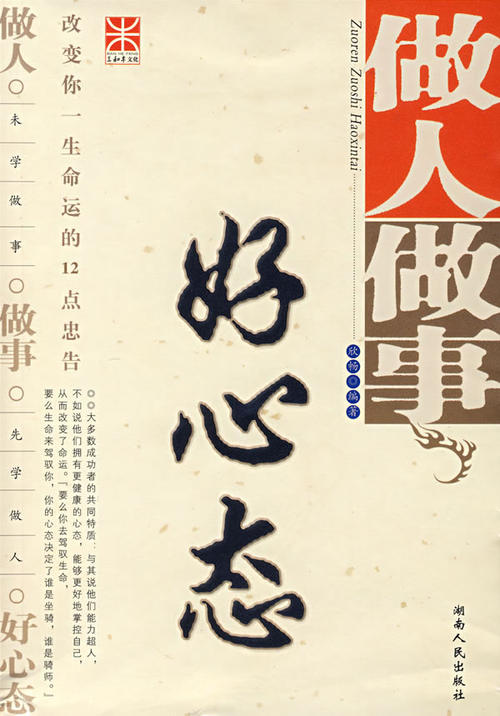 做人
做事
Zuoren Zuoshi Haoxintai
欣畅◎编著
好心态
湖南人民出版社
三和丰文化
改变你一生命运的12点忠告
◎◎大多数成功者的共同特质:与其说他们能力超人,
不如说他们拥有更健康的心态,能够更好地掌控自己,
从而改变了命运。“要么你去驾驭生命,
要么生命来驾驭你,你的心态决定了谁是坐骑,谁是骑师。”
做人○未学做事○做事○先学做人○好心态